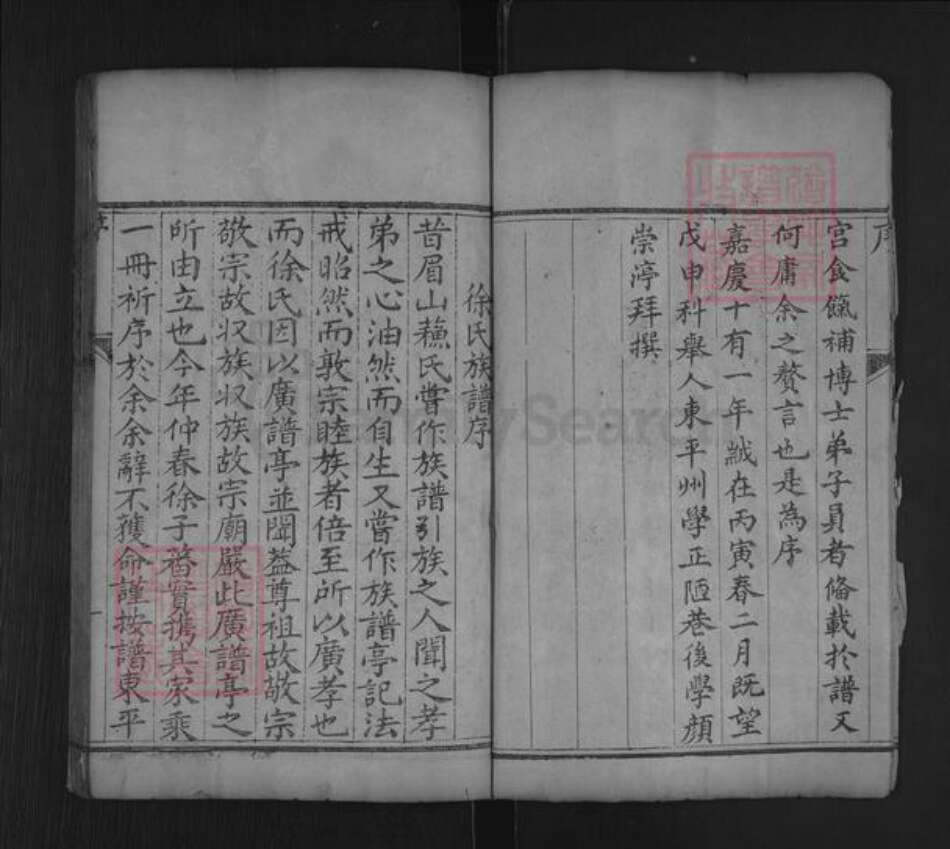 序
宫食餼補博士弟子員者俻載扵譜又
何庸余之贅言也是為序
嘉慶十有一年歲在丙寅春二月既望
戊申科舉人東平州學正陋巷後學顔
崇渟拜撰
徐氏族譜序
昔眉山蘓氏嘗作族譜引族之人聞之孝
弟之心油然而自生又嘗作族譜亭記法
戒昭然而敦宗睦族者倍至所以廣孝也
而徐氏因以廣譜亭並聞益尊祖故敬宗
敬宗故収族収族故宗廟嚴此廣譜亭之
所由立也今年仲春徐子蕃實携其家乘
一冊祈序於余余辭不獲命謹按譜東平
序
一
FamilySearch